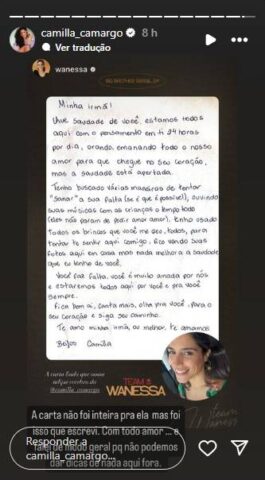 camilla_camargo 8 h
Ver tradução
wanessa
Minha irmã!
Que saudade de você, estamos todos
aqui com o pensamento em ti 24 horas
por dia, orando, emanando todo o nosso
amor para que chegue no seu coração,
mas a saudade está apertada.
Tenho buscado várias maneiras de tentar
"sanar" a sua falta (se é que é possível), ouvindo
suas músicas com as crianças o tempo todo
(eles não param de pedir amor amor). Tenho usado
todos os brincos que você me deu, todos, para
tentar te sentir aqui comigo. Fico vendo suas
fotos aqui em casa mas nada melhora a saudade
que eu tenho de você.
Você faz falta. Você é muito amada por nós
e estaremos todos aqui por você e pra você
sempre.
Fica bem aí, canta mais, olha pra você, para o
seu coração e siga seu caminho.
Te amo minha irmã, ou melhor, te amamos
Beijos Camilla
A carta linda que nossa
@camilla_camargo
TEAM
WANESSA
A carta não foi inteira pra ela mas foi
isso que escrevi. Com todo amor ... e
falei de modo geral pq não podemos
dar dicas de nada aqui fora.
Team
Wanessa
Responder a
camilla_camargo...